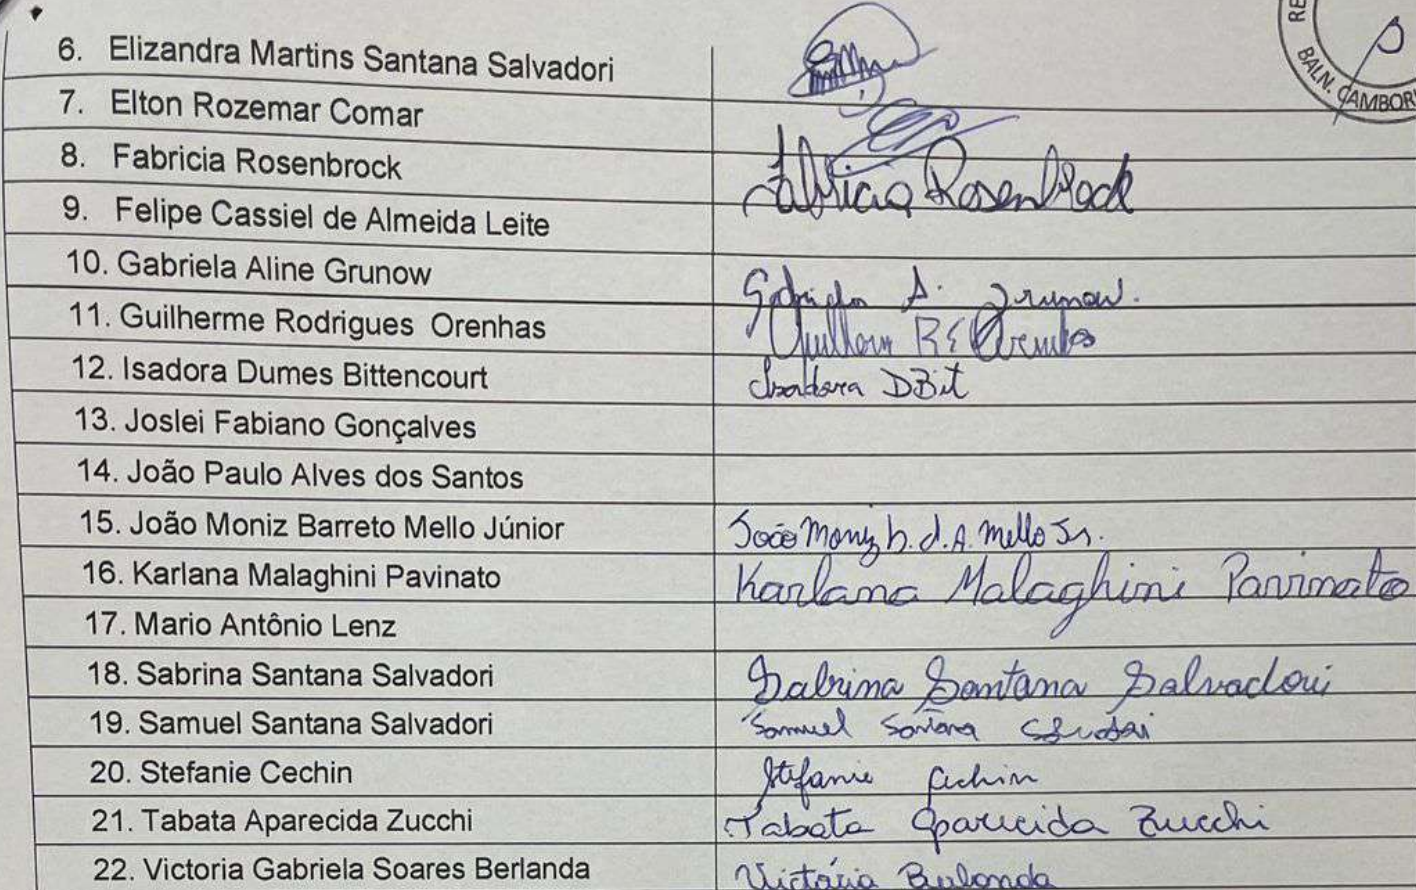 RE
BALN. CAMBOR
6. Elizandra Martins Santana Salvadori
7. Elton Rozemar Comar
8. Fabricia Rosenbrock Fabricia Rosenbrock
9. Felipe Cassiel de Almeida Leite
10. Gabriela Aline Grunow Gabriela A. Grunow.
11. Guilherme Rodrigues Orenhas
12. Isadora Dumes Bittencourt Isadora DBit
13. Joslei Fabiano Gonçalves
14. João Paulo Alves dos Santos
15. João Moniz Barreto Mello Júnior João Moniz b. d. A. Mello Jr.
16. Karlana Malaghini Pavinato Karlana Malaghini Pavinato
17. Mario Antônio Lenz
18. Sabrina Santana Salvadori Sabrina Santana Salvadori
19. Samuel Santana Salvadori Samuel Santana
20. Stefanie Cechin Stefanie Cechin
21. Tabata Aparecida Zucchi Tabata Aparecida Zucchi
22. Victoria Gabriela Soares Berlanda Victória Berlanda